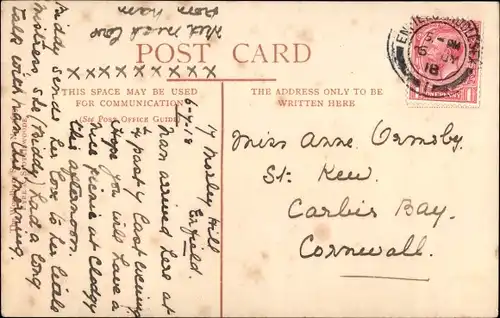 POST CARD
THIS SPACE MAY BE USED
FOR COMMUNICATION
(SEE POST OFFICE GUIDE)
THE ADDRESS ONLY TO BE
WRITTEN HERE
Miss Anne Ormsby
St: Kew.
Carbis Bay.
Cornwall.
17 Morley Hill
Enfield.
6-7-18
Nan arrived here at
¼ past 7 last evening
Hope you will have a
nice picnic at Clodgy
this afternoon.
Biddy sends her love to her little
Mistress, she (Biddy) had a long
talk with nan, this morning.
With much love
from nan
X X X X X X X X X
ENFIELD MIDDLESEX
5 - PM
6 JY
18